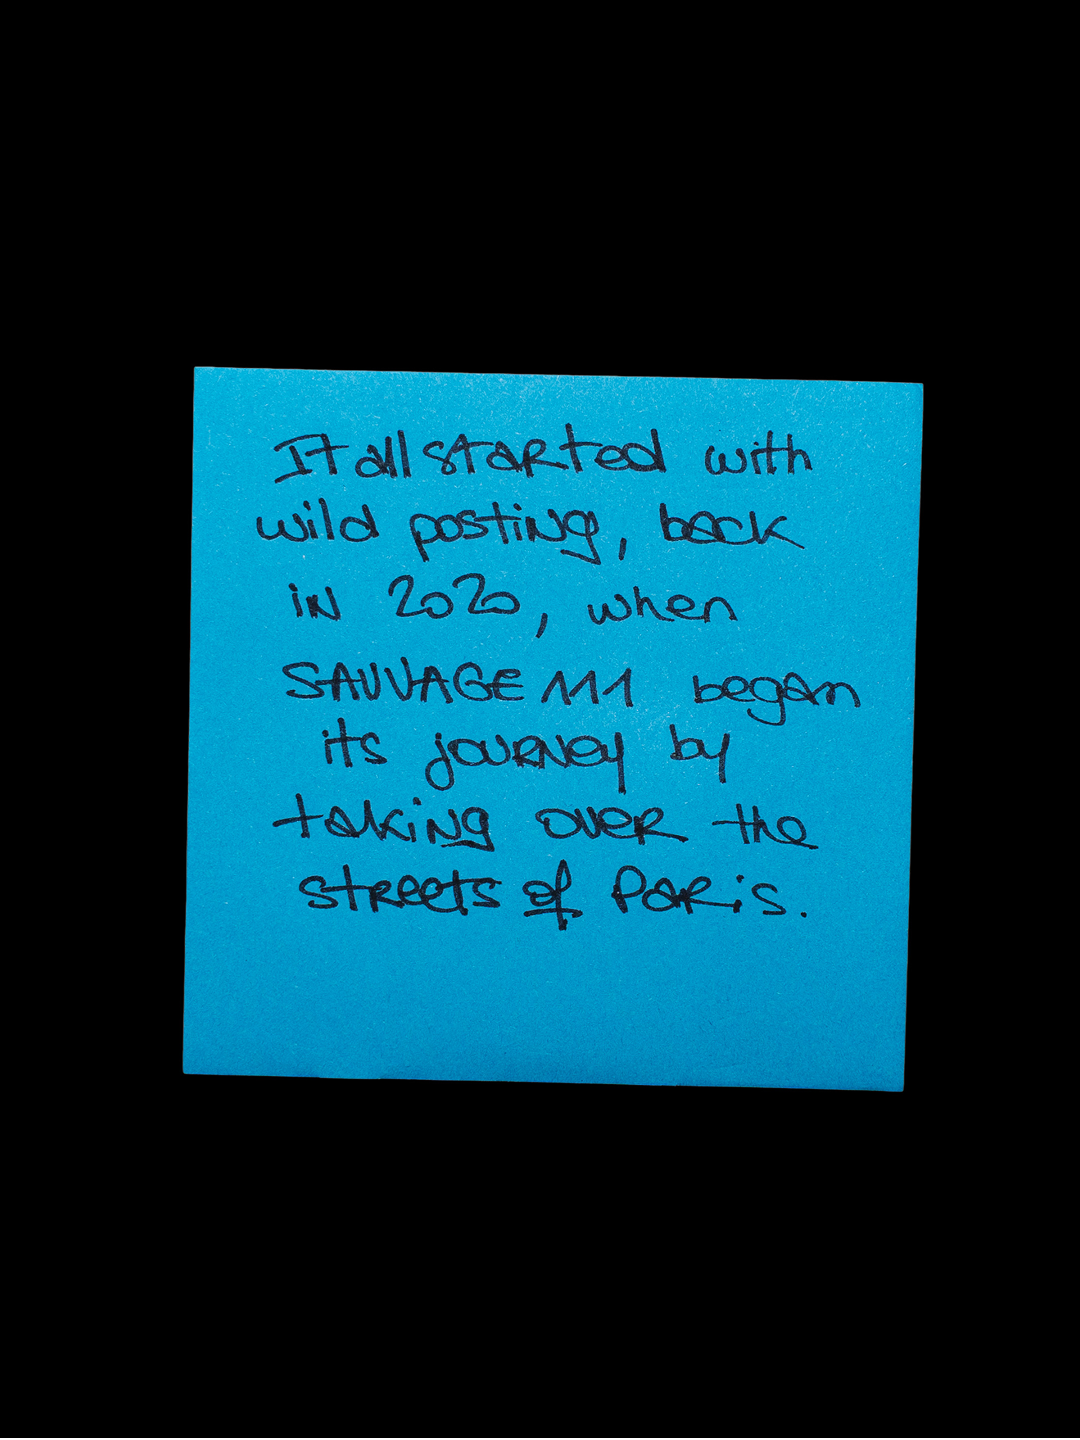 It all started with
wild posting, back
in 2020, when
SAUVAGE 111 began
its journey by
taking over the
streets of Paris.